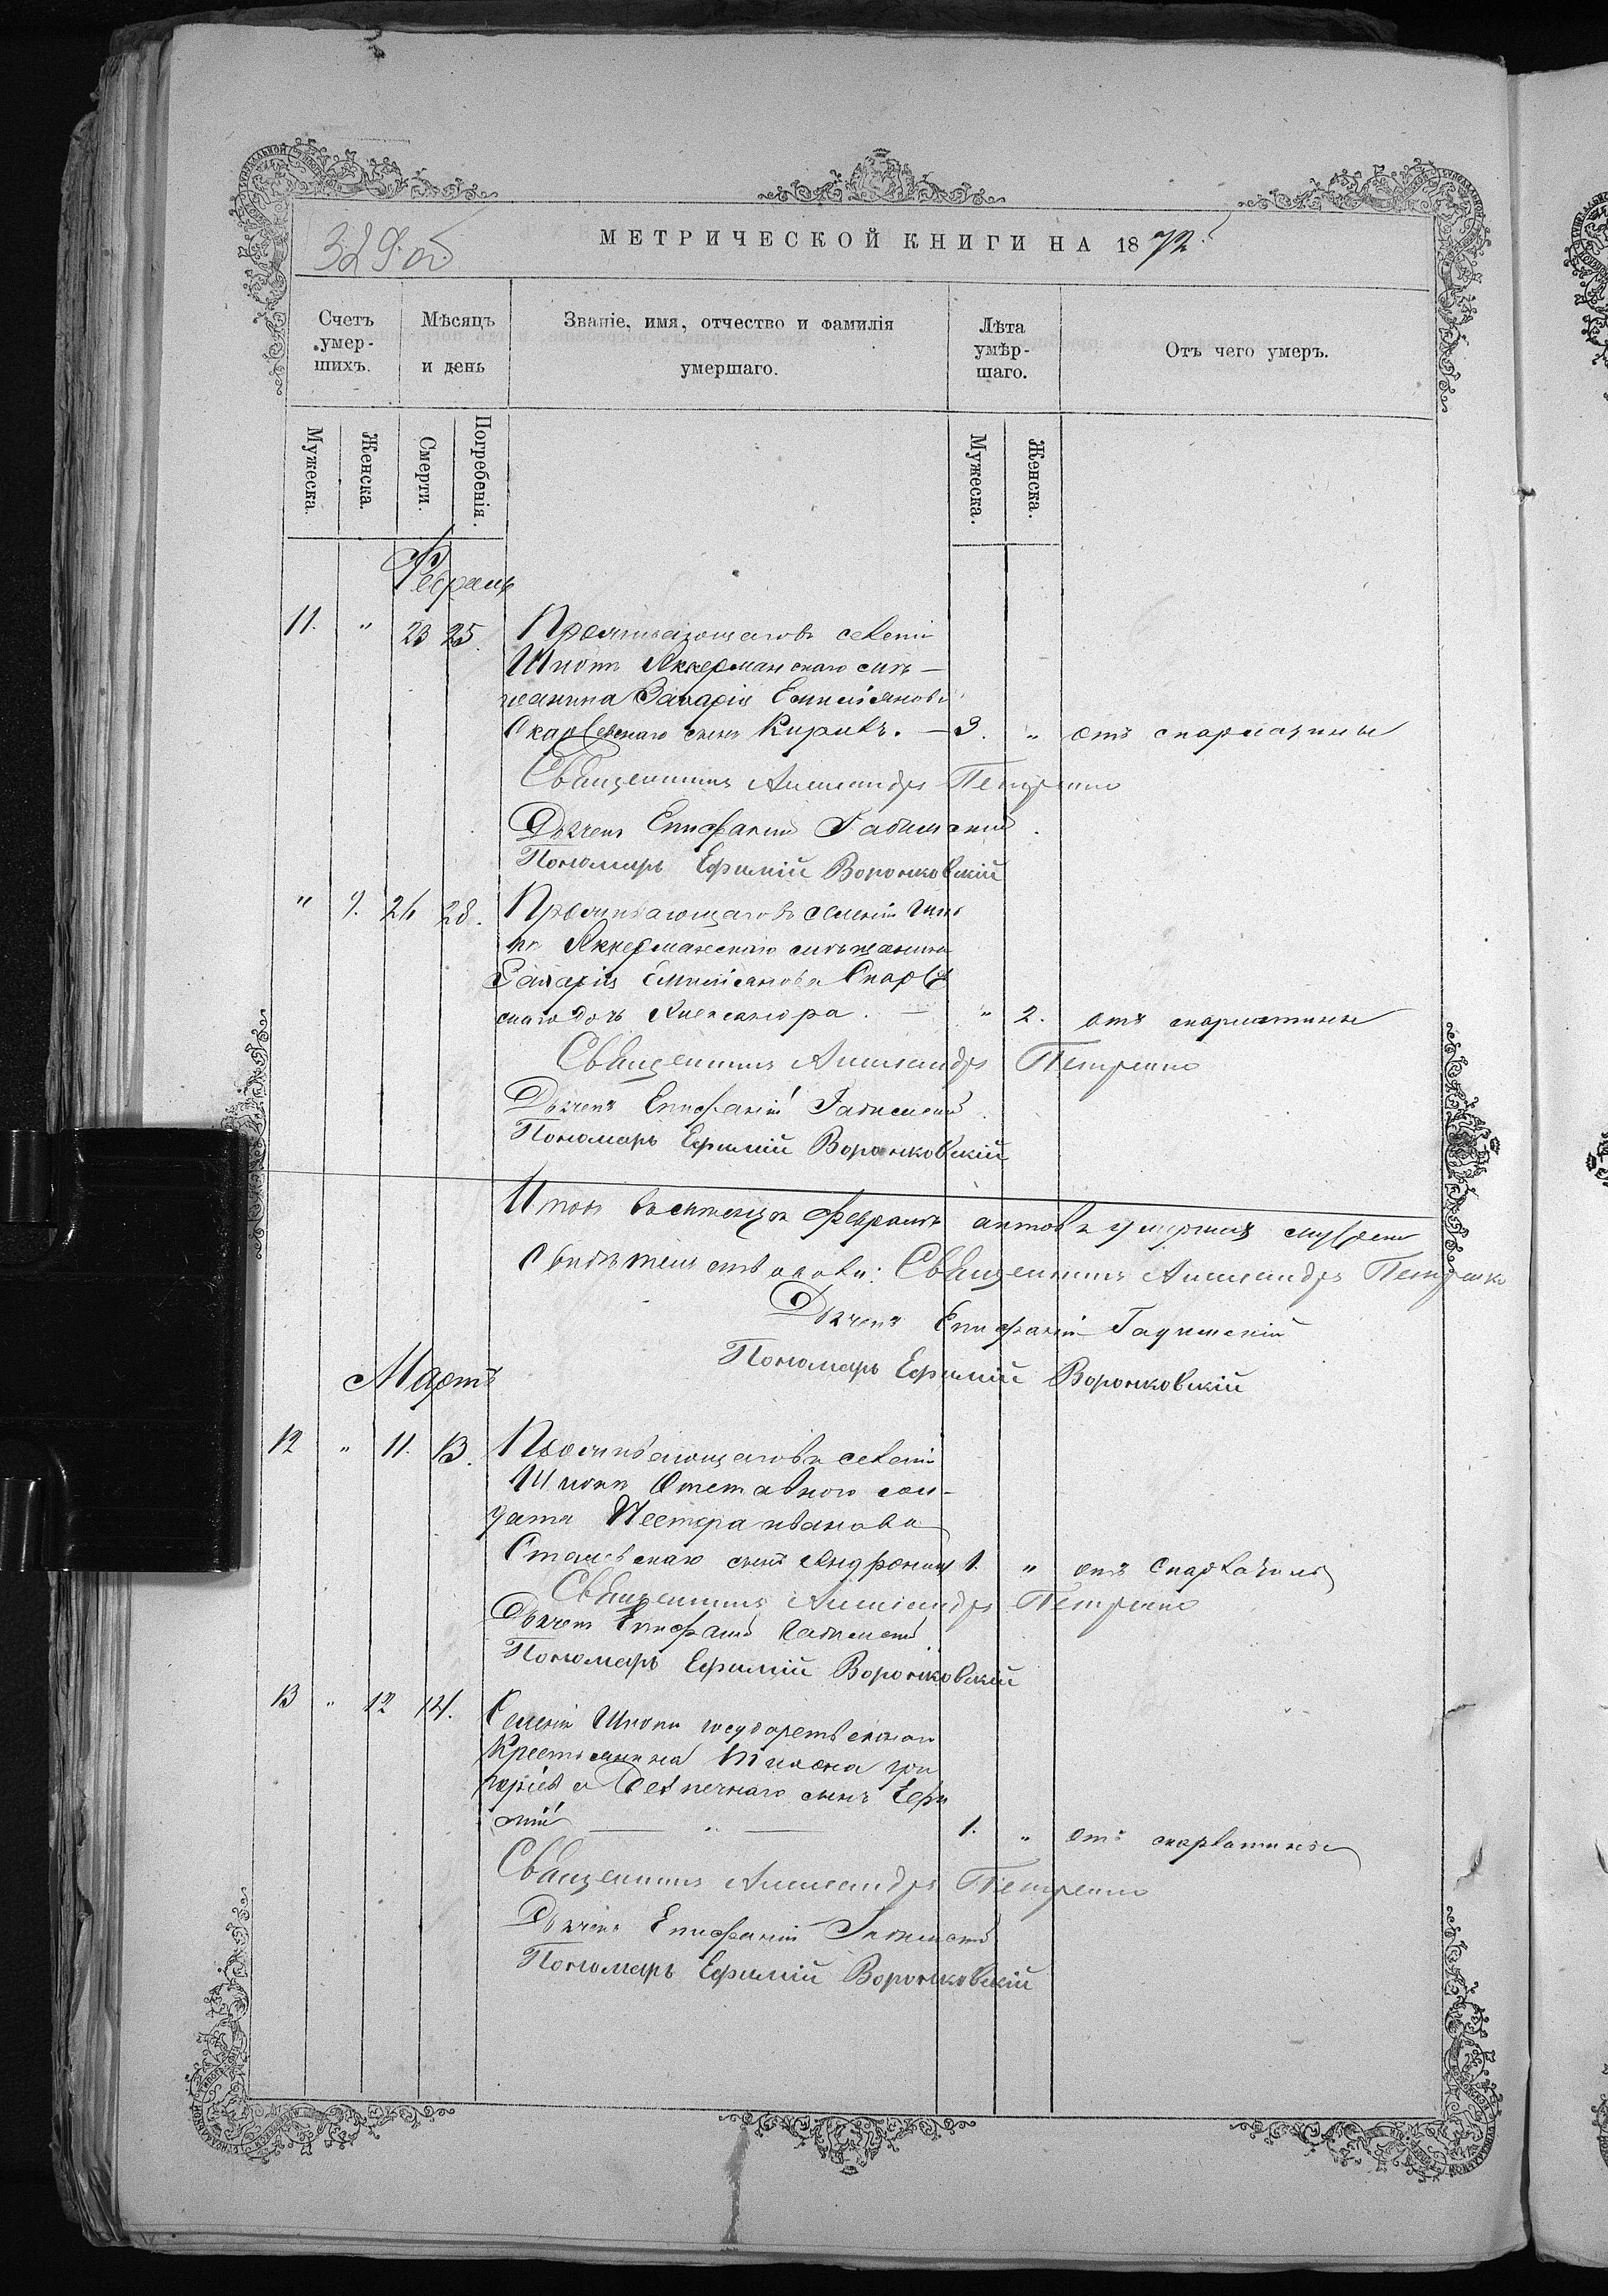 329 об
МЕТРИЧЕСКОЙ КНИГИ НА 1872
Счетъ умер-шихъ.
Мѣсяцъ и день
Званіе, имя, отчество и фамилія умершаго.
Лѣта умѣр-шаго.
Отъ чего умеръ.
Мужеска. Женска. Смерти. Погребенія. Мужеска. Женска.
Февраль
11. " 23 25. Проживающаго въ селеніи
Аккерманскаго мѣ-
щанина Захарія Емиліянова
сынъ Кирилъ. — 3. " отъ скарлатины
Священникъ Александръ Петренко
Дьячекъ Епифаній
Пономарь Ефимій Воронковскій
" 9. 26 28. Проживающаго въ селеніи
Аккерманскаго мѣщанина
Захарія Емиліянова
скаго дочь Александра. — " 2. отъ скарлатины
Священникъ Александръ Петренко
Дьячекъ Епифаній
Пономарь Ефимій Воронковскій
Итого въ мѣсяцѣ Февралѣ актовъ умершихъ
Свидѣтельствовали: Священникъ Александръ Петренко
Дьячекъ Епифаній
Пономарь Ефимій Воронковскій
Мартъ
12 " 11. 13. Проживающаго въ селеніи
Отставного сол-
дата Нестера Иванова
сынъ Андроникъ 1. " отъ
Священникъ Александръ Петренко
Дьячекъ Епифаній
Пономарь Ефимій Воронковскій
13 " 12 14. Селенія государственнаго
Крестьянина Тихона Гри
горіева сынъ Ефи
мій — " — 1. " отъ скарлатины
Священникъ Александръ Петренко
Дьячекъ Епифаній
Пономарь Ефимій Воронковскій